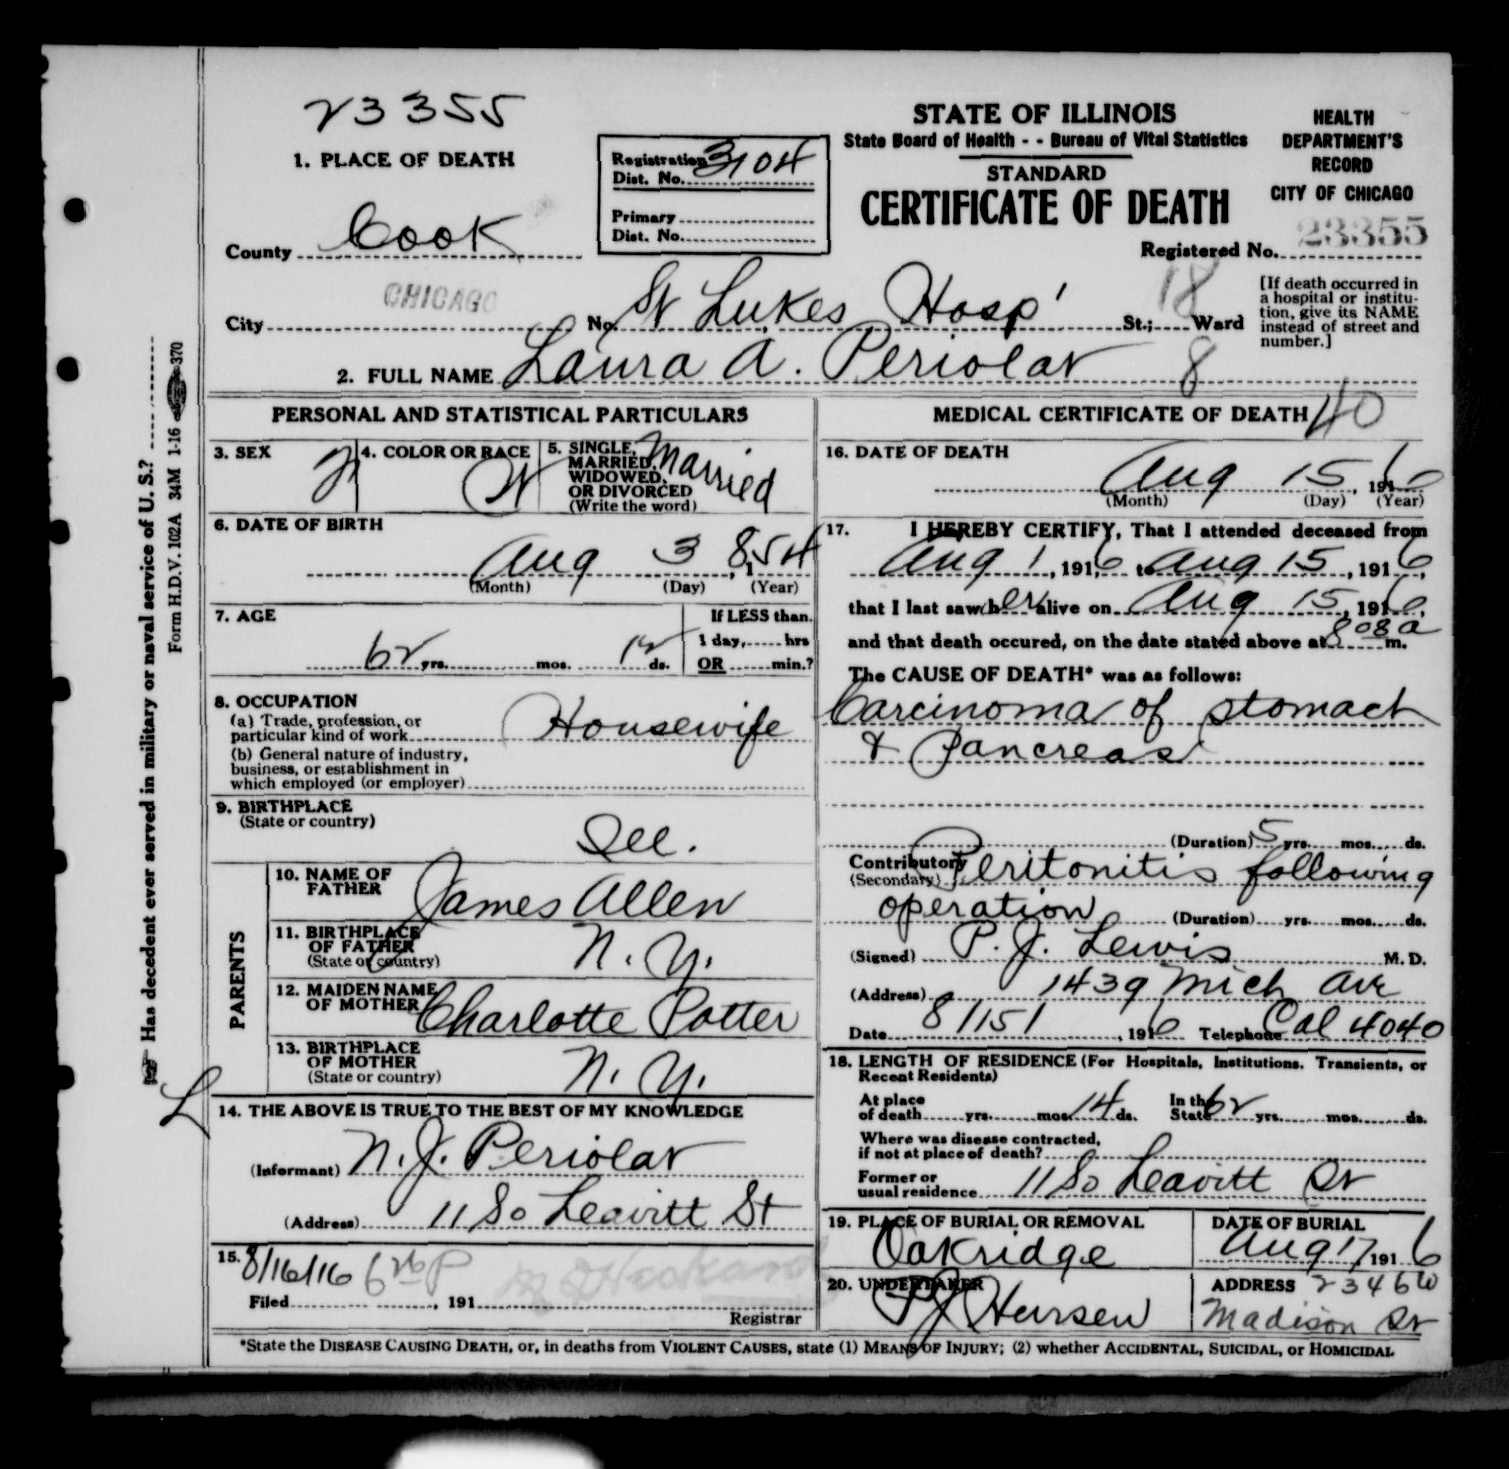 23355
1. PLACE OF DEATH
County Cook
City CHICAGO
Registration Dist. No. 3104
Primary Dist. No.
STATE OF ILLINOIS
State Board of Health - - Bureau of Vital Statistics
STANDARD
CERTIFICATE OF DEATH
HEALTH
DEPARTMENT'S
RECORD
CITY OF CHICAGO
Registered No. 23355
No. St Lukes Hosp' St.; 18 Ward
[If death occurred in
a hospital or institu-
tion, give its NAME
instead of street and
number.]
2. FULL NAME Laura A. Periolat 8
PERSONAL AND STATISTICAL PARTICULARS
3. SEX F
4. COLOR OR RACE W
5. SINGLE,
MARRIED,
WIDOWED,
OR DIVORCED
(Write the word)
Married
6. DATE OF BIRTH
Aug 3, 1854
(Month) (Day) (Year)
7. AGE
62 yrs. mos. 12 ds.
If LESS than
1 day, hrs
OR min.?
8. OCCUPATION
(a) Trade, profession, or
particular kind of work Housewife
(b) General nature of industry,
business, or establishment in
which employed (or employer)
9. BIRTHPLACE
(State or country)
Ill.
PARENTS
10. NAME OF
FATHER
James Allen
11. BIRTHPLACE
OF FATHER
(State or country)
N. Y.
12. MAIDEN NAME
OF MOTHER
Charlotte Potter
13. BIRTHPLACE
OF MOTHER
(State or country)
N. Y.
L
14. THE ABOVE IS TRUE TO THE BEST OF MY KNOWLEDGE
(Informant) N. J. Periolat
(Address) 11 So Leavitt St
15. 8/16/16
Filed , 191
Registrar
MEDICAL CERTIFICATE OF DEATH 40
16. DATE OF DEATH
Aug 15, 1916
(Month) (Day) (Year)
17. I HEREBY CERTIFY, That I attended deceased from
Aug 1, 1916, to Aug 15, 1916,
that I last saw her alive on Aug 15, 1916,
and that death occured, on the date stated above at 8 08 a m.
The CAUSE OF DEATH* was as follows:
Carcinoma of stomach
& Pancreas
(Duration) 5 yrs. mos. ds.
Contributory Peritonitis following
(Secondary)
operation (Duration) yrs. mos. ds.
(Signed) P. J. Lewis M. D.
(Address) 1439 Mich Ave
Date 8/15/, 1916 Telephone Cal 4040
18. LENGTH OF RESIDENCE (For Hospitals, Institutions, Transients, or
Recent Residents)
At place
of death yrs. mos. 14 ds.
In the
State 62 yrs. mos. ds.
Where was disease contracted,
if not at place of death?
Former or
usual residence 11 So Leavitt St
19. PLACE OF BURIAL OR REMOVAL
Oakridge
DATE OF BURIAL
Aug 17, 1916
20. UNDERTAKER
P J Hursen
ADDRESS 2346 W
Madison St
*State the DISEASE CAUSING DEATH, or, in deaths from VIOLENT CAUSES, state (1) MEANS OF INJURY; (2) whether ACCIDENTAL, SUICIDAL, or HOMICIDAL
Has decedent ever served in military or naval service of U. S.?
Form H.D.V. 102A 34M 1-16 370